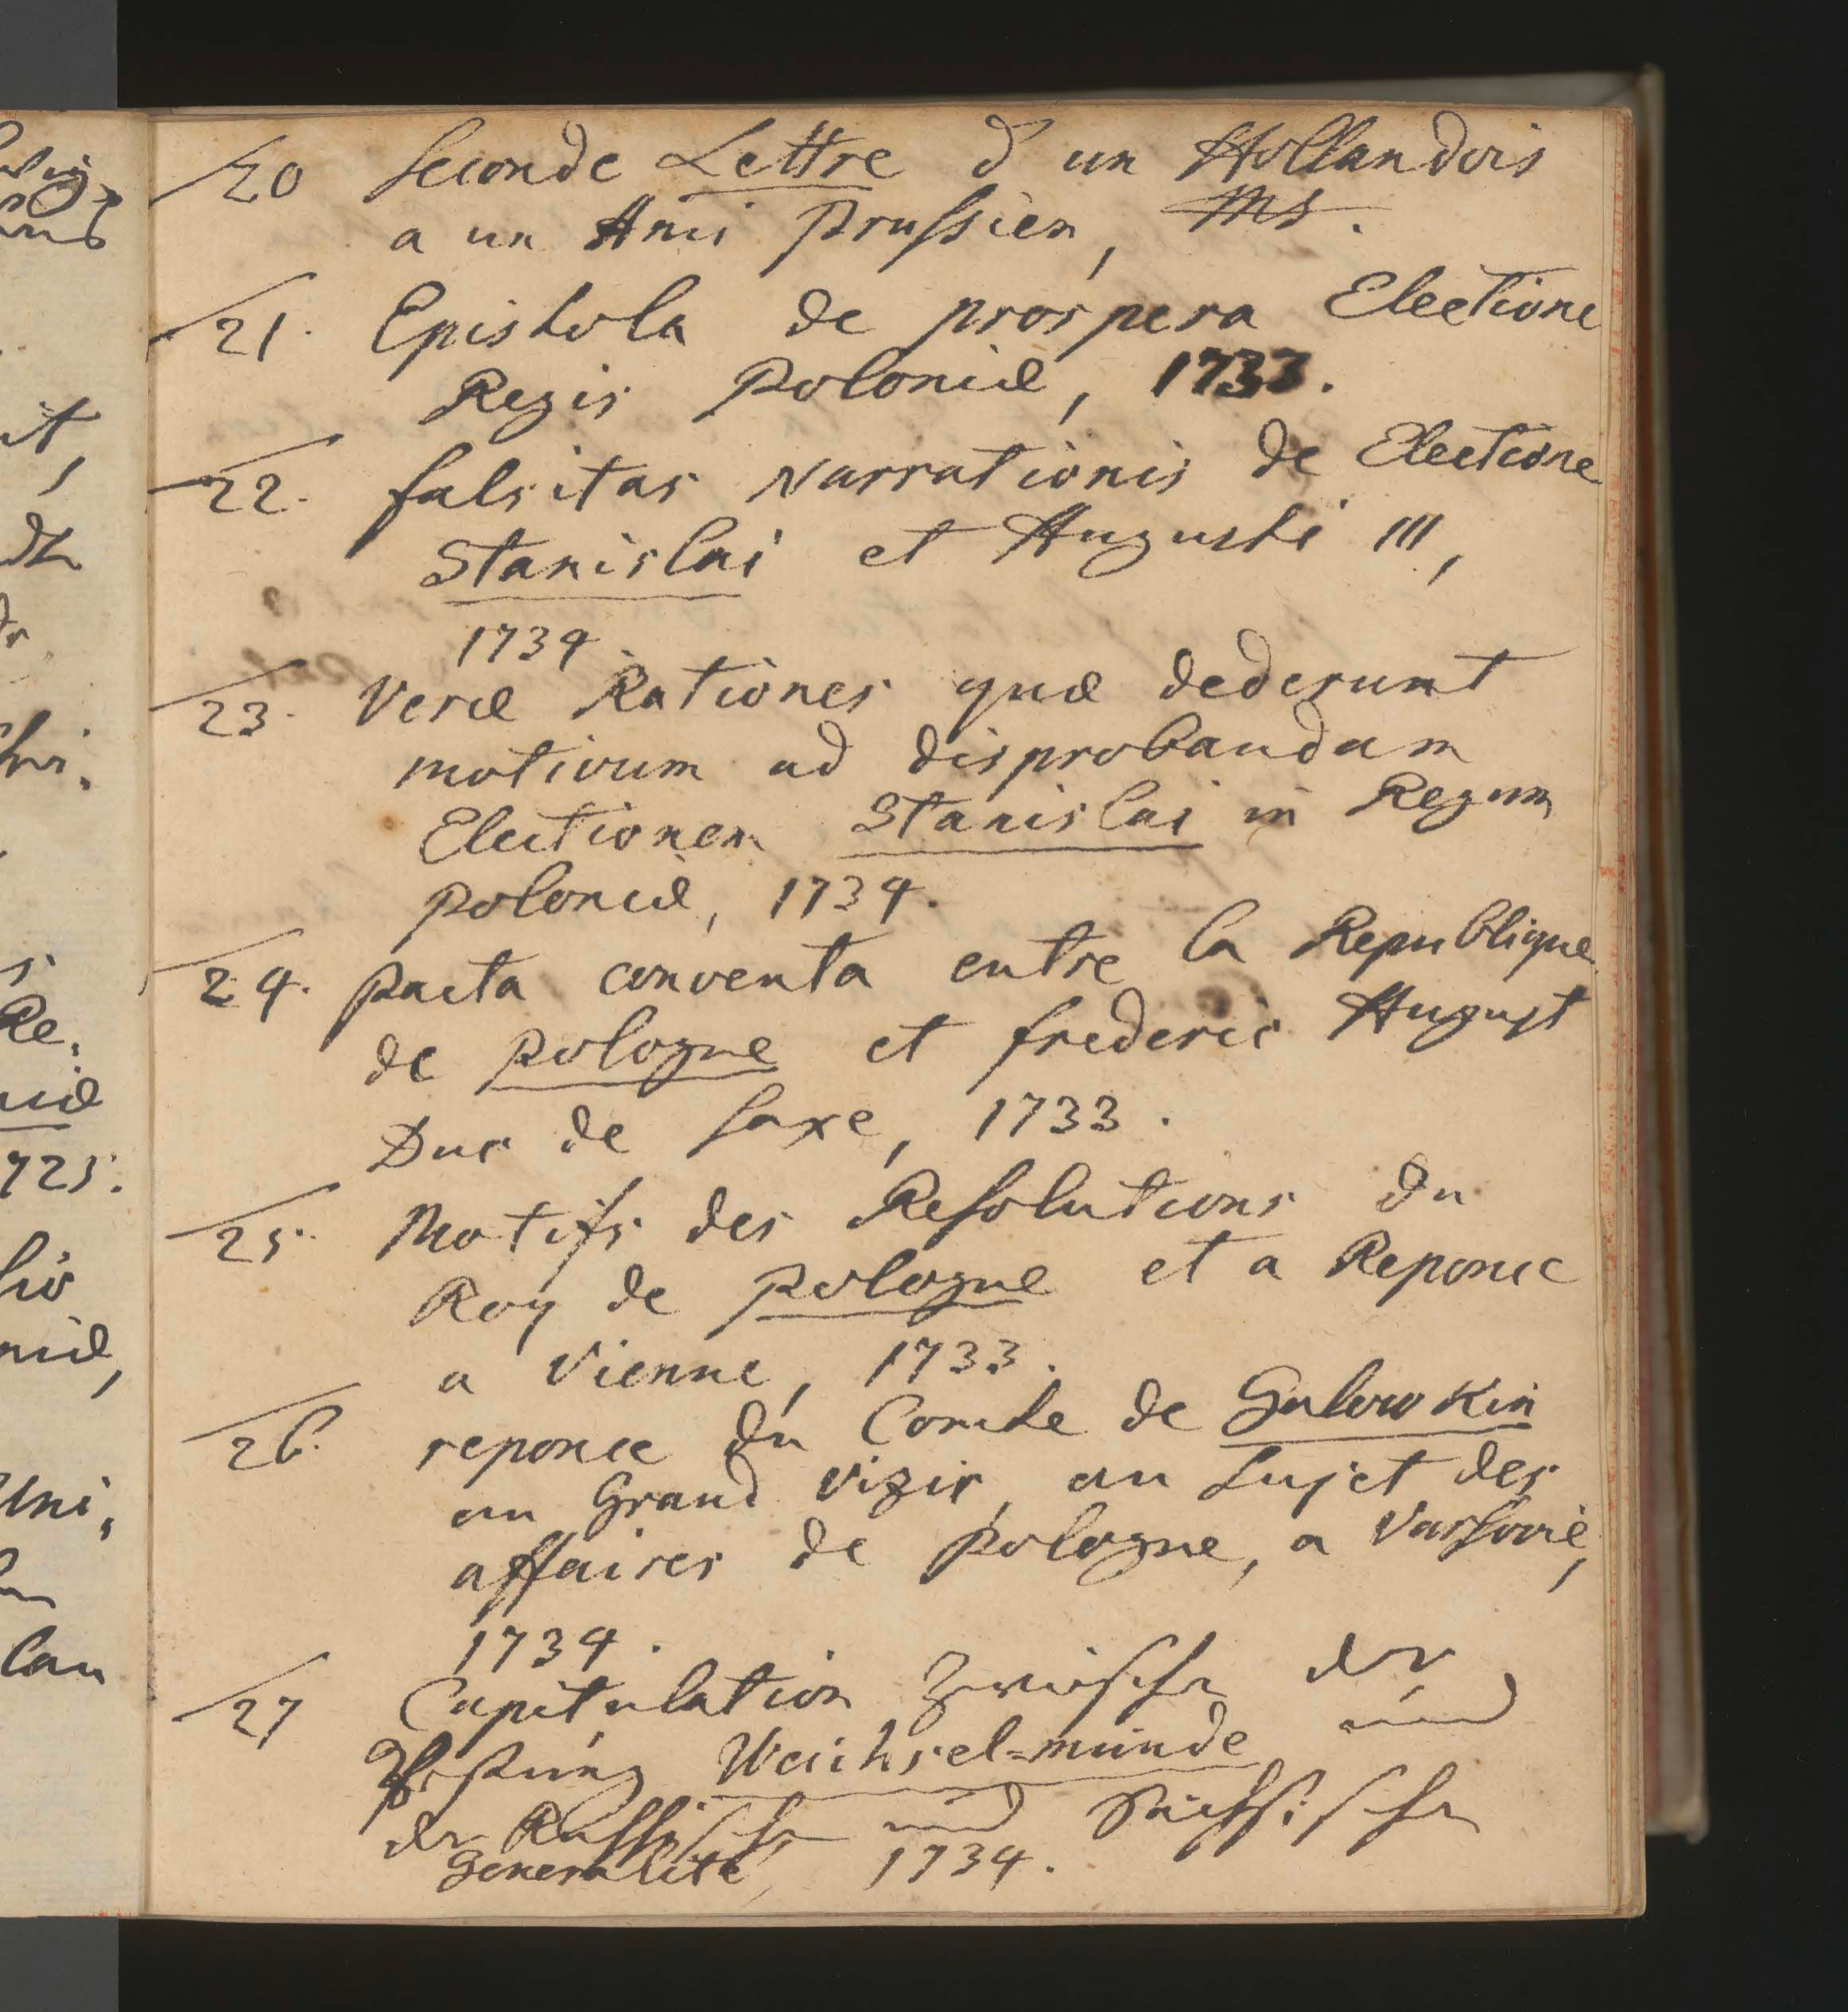 20 Seconde Lettre d un Hollandois
a un Ami Prussien, Ms.
21. Epistola de prospera Electione
Regis Poloniæ, 1733.
22. falsitas Narrationis de Electione
Stanislai et Augusti III,
1734.
23. Veræ Rationes quæ dederunt
motivum ad disprobandam
Electionem Stanislai in Regum
Poloniæ, 1734.
24. Pacta conventa entre la Republique
de Pologne et frederic August
Duc de Saxe, 1733.
25. Motifs des Resolutions du
Roy de Pologne et a Reponce
a Vienne, 1733.
26. reponce du Comte de Golowkin
au Grand Vizir, au Sujet des
affaires de Pologne, a Varsovie,
1734.
27 Capitulation zwischen der
Vestung Weichsel=münde und
der Russischen und Sächsischen
Generalité, 1734.